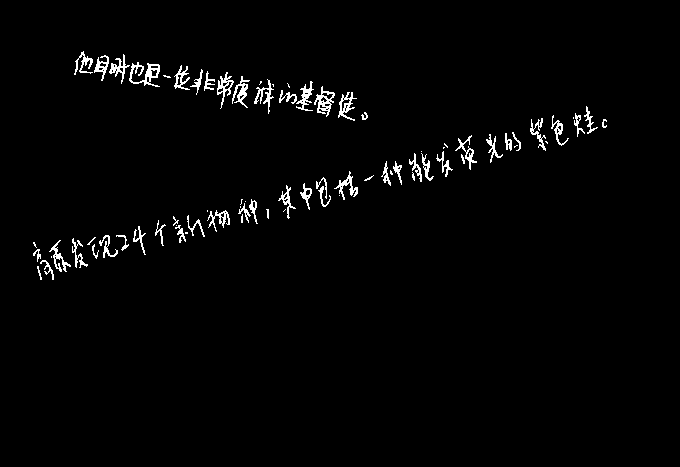 他同时也是一位非常虔诚的基督徒。
高原发现24个新物种,其中包括一种能发荧光的紫色蛙。